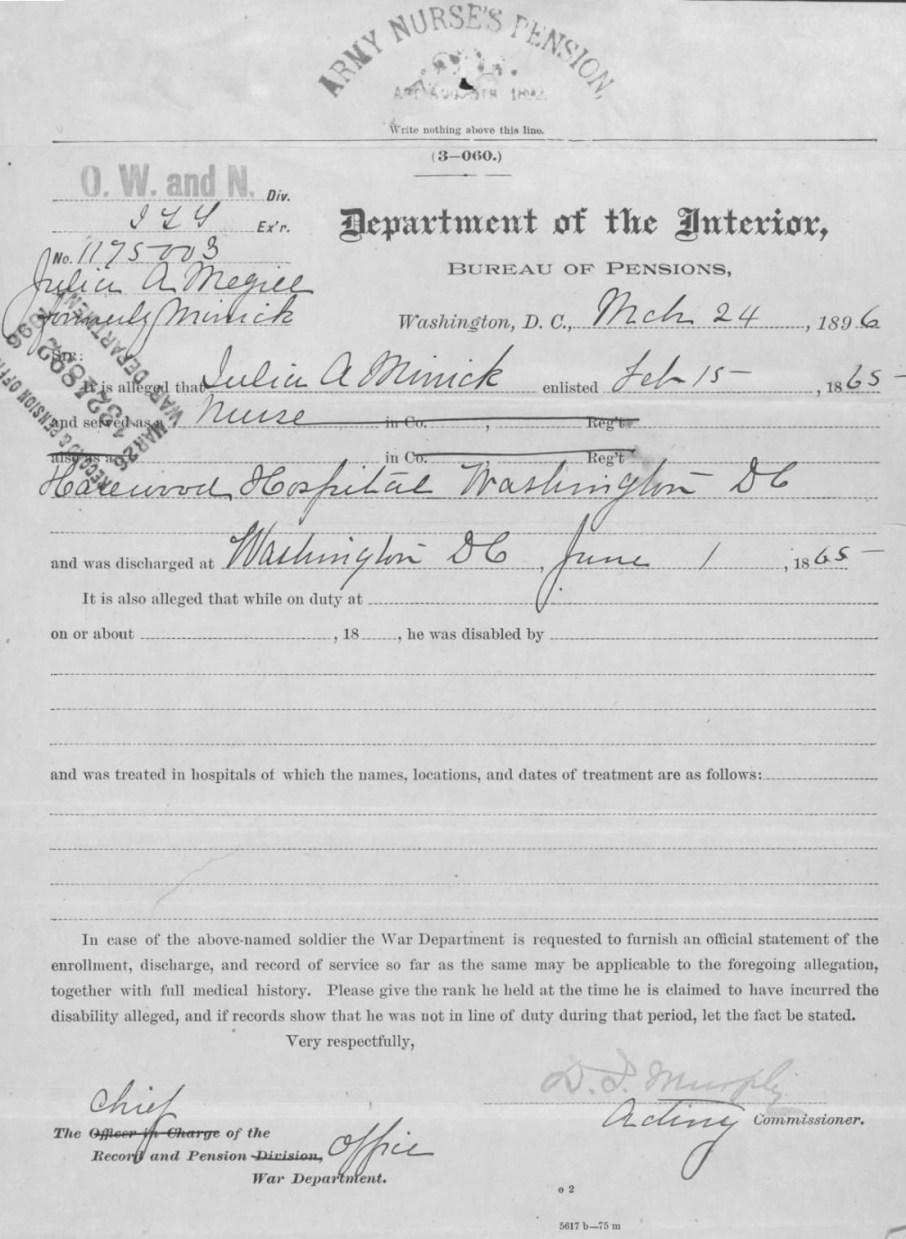 ARMY NURSE'S PENSION,
ACT AUGUST 5TH 1892.
Write nothing above this line.
(3—060.)
O. W. and N. Div.
Ex'r.
No. 1175003
Julia A Megill
formerly Minick
Department of the Interior,
BUREAU OF PENSIONS,
Washington, D. C., Mch 24, 1896
Sir:
It is alleged that Julia A Minick enlisted Feb 15, 1865
and served as a Nurse in Co. , Reg't
also as a in Co. Reg't
Harewood Hospital Washington DC
and was discharged at Washington DC, June 1, 1865
It is also alleged that while on duty at
on or about , 18 , he was disabled by
and was treated in hospitals of which the names, locations, and dates of treatment are as follows:
In case of the above-named soldier the War Department is requested to furnish an official statement of the
enrollment, discharge, and record of service so far as the same may be applicable to the foregoing allegation,
together with full medical history. Please give the rank he held at the time he is claimed to have incurred the
disability alleged, and if records show that he was not in line of duty during that period, let the fact be stated.
Very respectfully,
D. I. Murphy
Acting Commissioner.
Chief
The Officer in Charge of the
Record and Pension Division, Office
War Department.
o 2
5617 b—75 m
RECORD & PENSION OFFICE
WAR DEPARTMENT
MAR 26
1896